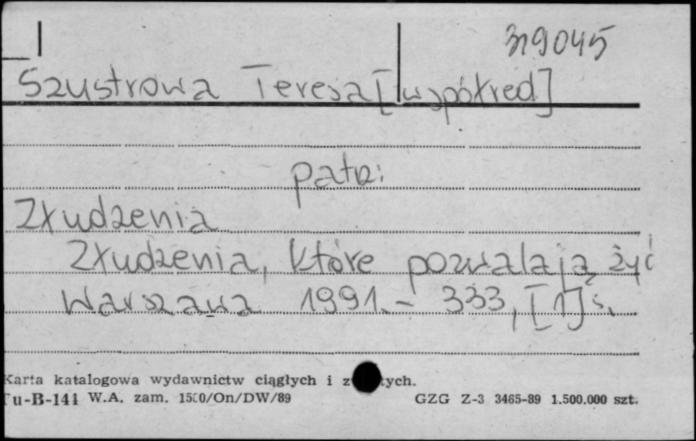 319045
Szustrowa Teresa [współred]
patrz:
Złudzenia
Złudzenia, które pozwalają żyć
Warszawa 1991. - 333, [1] s.
Karta katalogowa wydawnictw ciągłych i z tych.
u-B-141 W.A. zam. /On/DW/89 GZG Z-3 3465-89 1.500.000 szt.